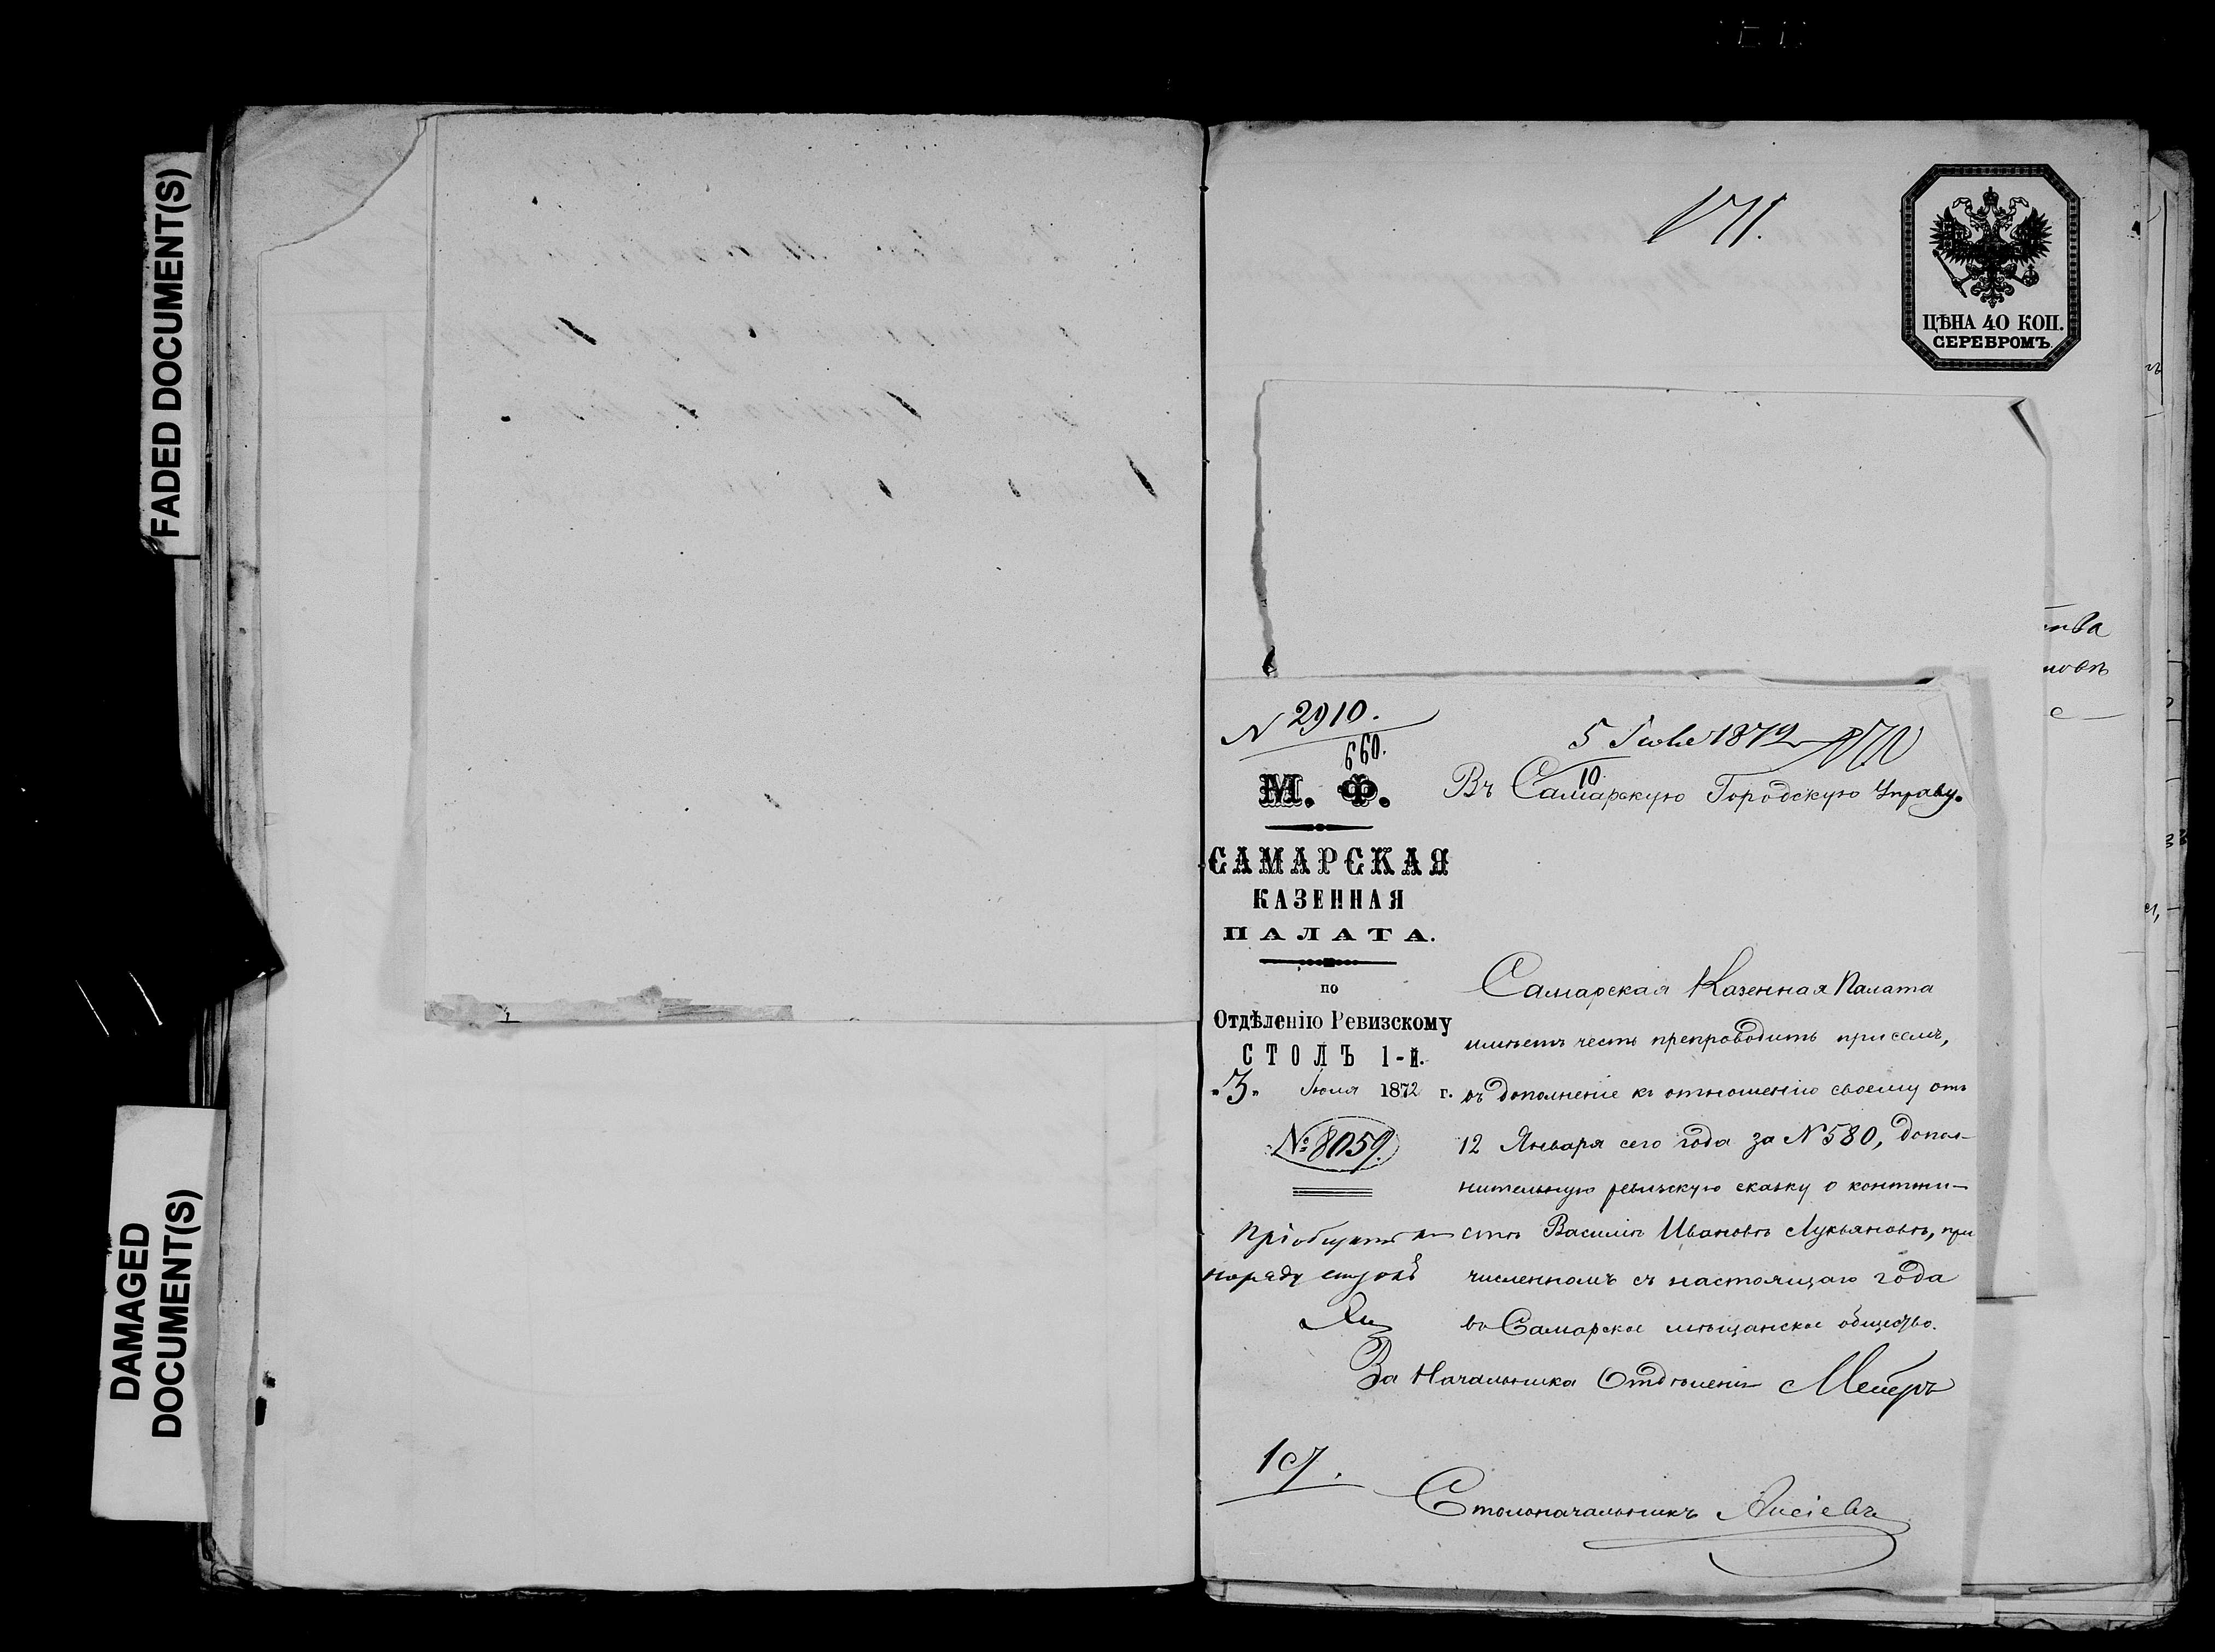 FADED DOCUMENT(S)
DAMAGED
DOCUMENT(S)
171.
ЦѢНА 40 КОП.
СЕРЕБРОМЪ.
N 2910.
660.
5 Іюля 1872
10.
М. Ф.
Въ Самарскую Городскую Управу.
САМАРСКАЯ
КАЗЕННАЯ
ПАЛАТА.
по
Отдѣленію Ревизскому
СТОЛЪ 1-й.
„3„ Іюля 1872 г.
№ 8059.
Самарская Казенная Палата
имѣетъ честь препроводить при семъ,
въ дополненіе къ отношенію своему отъ
12 Января сего года за N 580, допол-
нительную ревизскую сказку о контони-
стѣ Василіѣ Ивановѣ Лукьяновѣ, при
численномъ съ настоящаго года
во Самарское мѣщанское общество.
Пріобщить къ
наряду
За Начальника Отдѣленія Мейеръ
Столоначальникъ